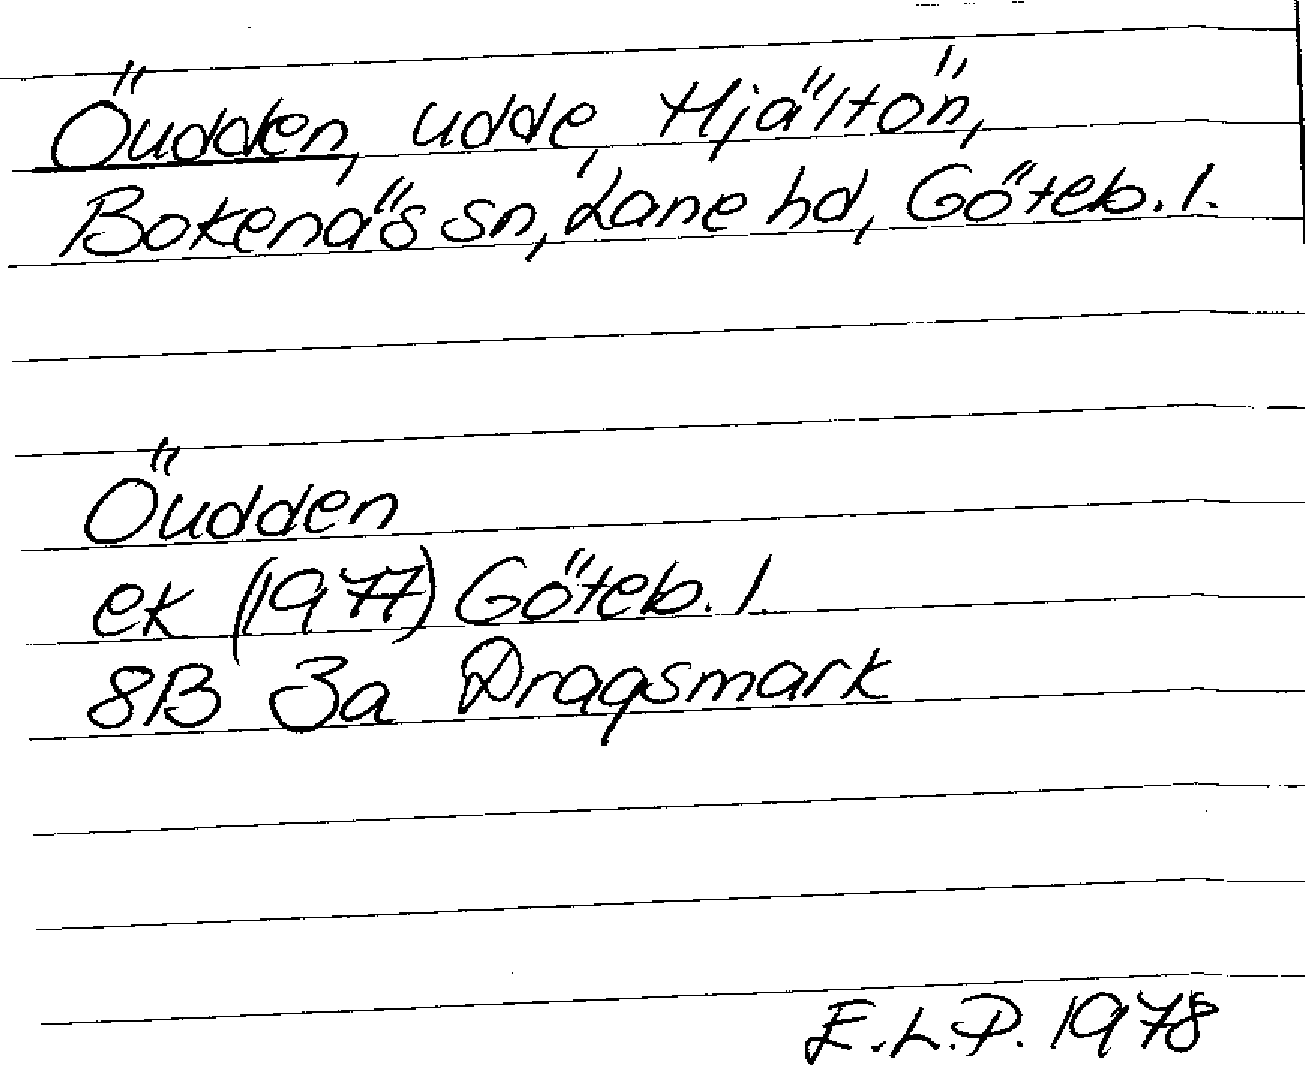 Öudden, udde, Hjältön,
Bokenäs sn, Lane hd, Göteb. l.
Öudden
ek (1977) Göteb. l.
8B 3a Dragsmark
E.L.P. 1978